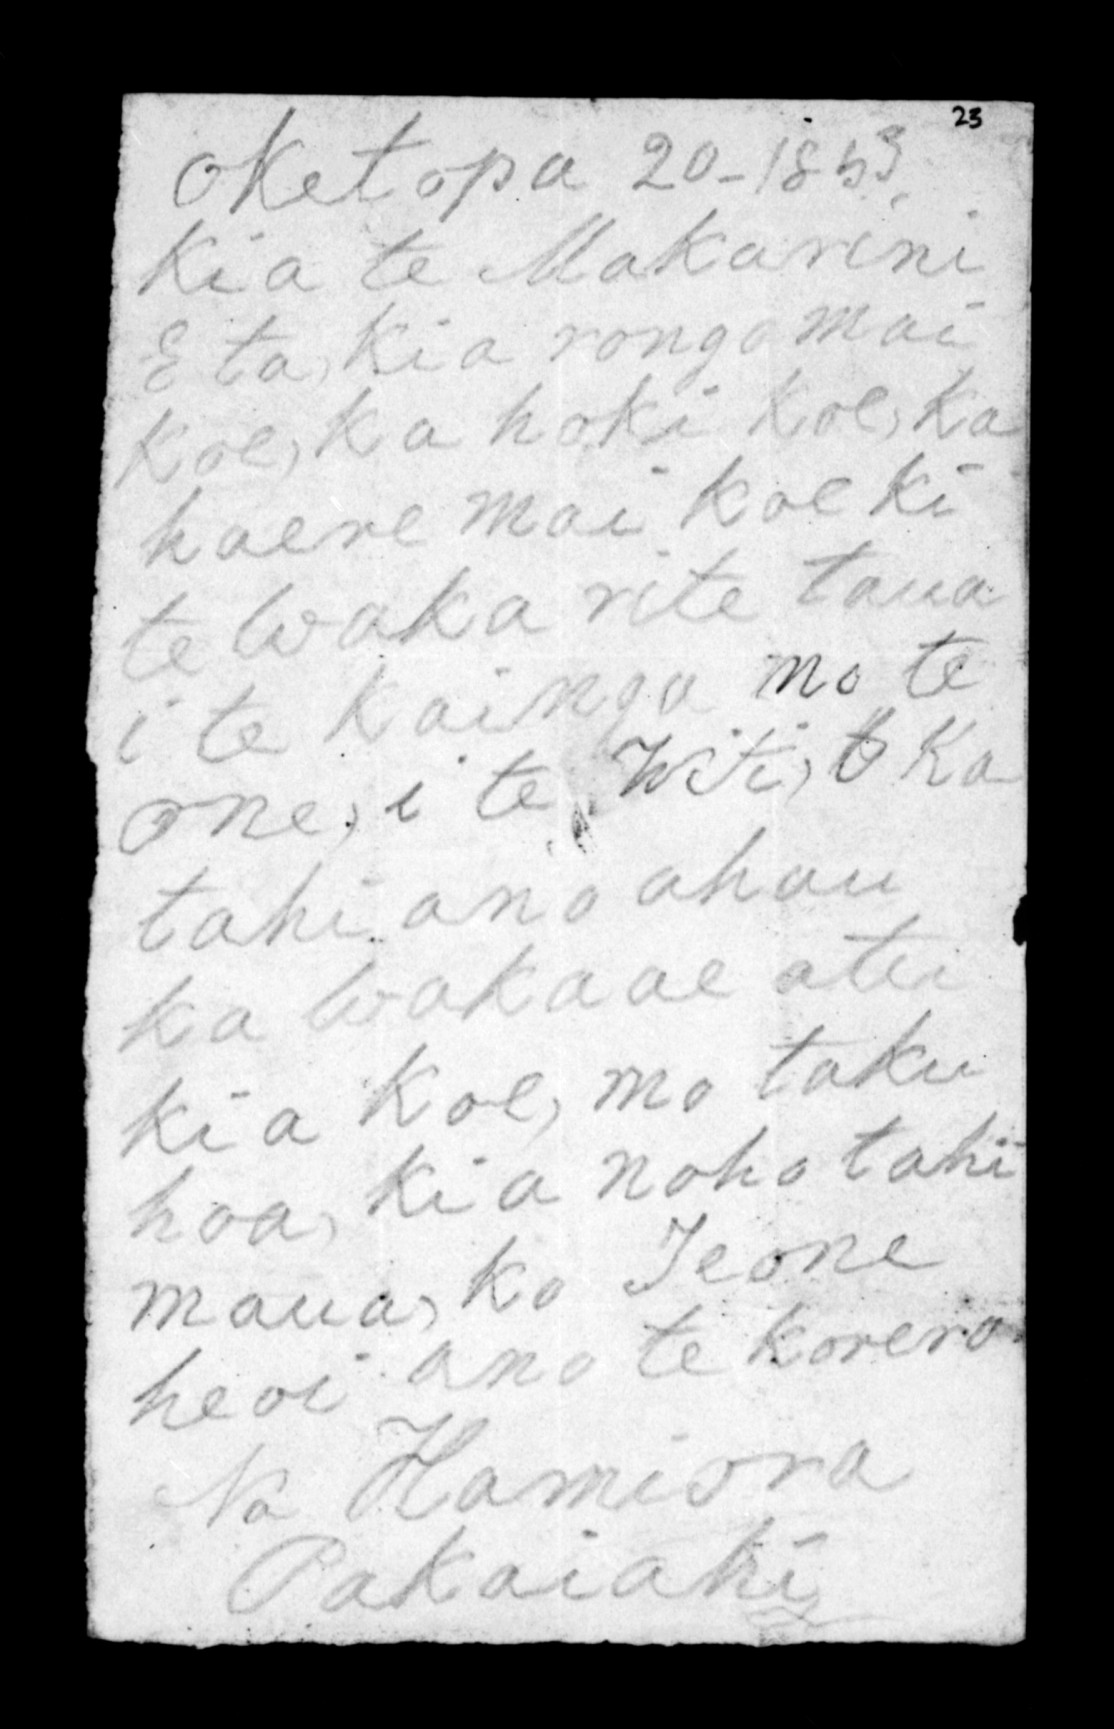 23
Oketopa 20-1853,
Kia te Makarini
E ta, kia rongo mai
koe, ka hoki koe, ka
haere mai koe ki
te Wakarite taua
i te kainga mo te
one, i te Witi, Ka
tahi ano ahau
ka Wakaae atu
kia koe, mo taku
hoa, kia noho tahi
maua, ko Teone
heoi ano te korero
Na Hamiora
Pakaiahi